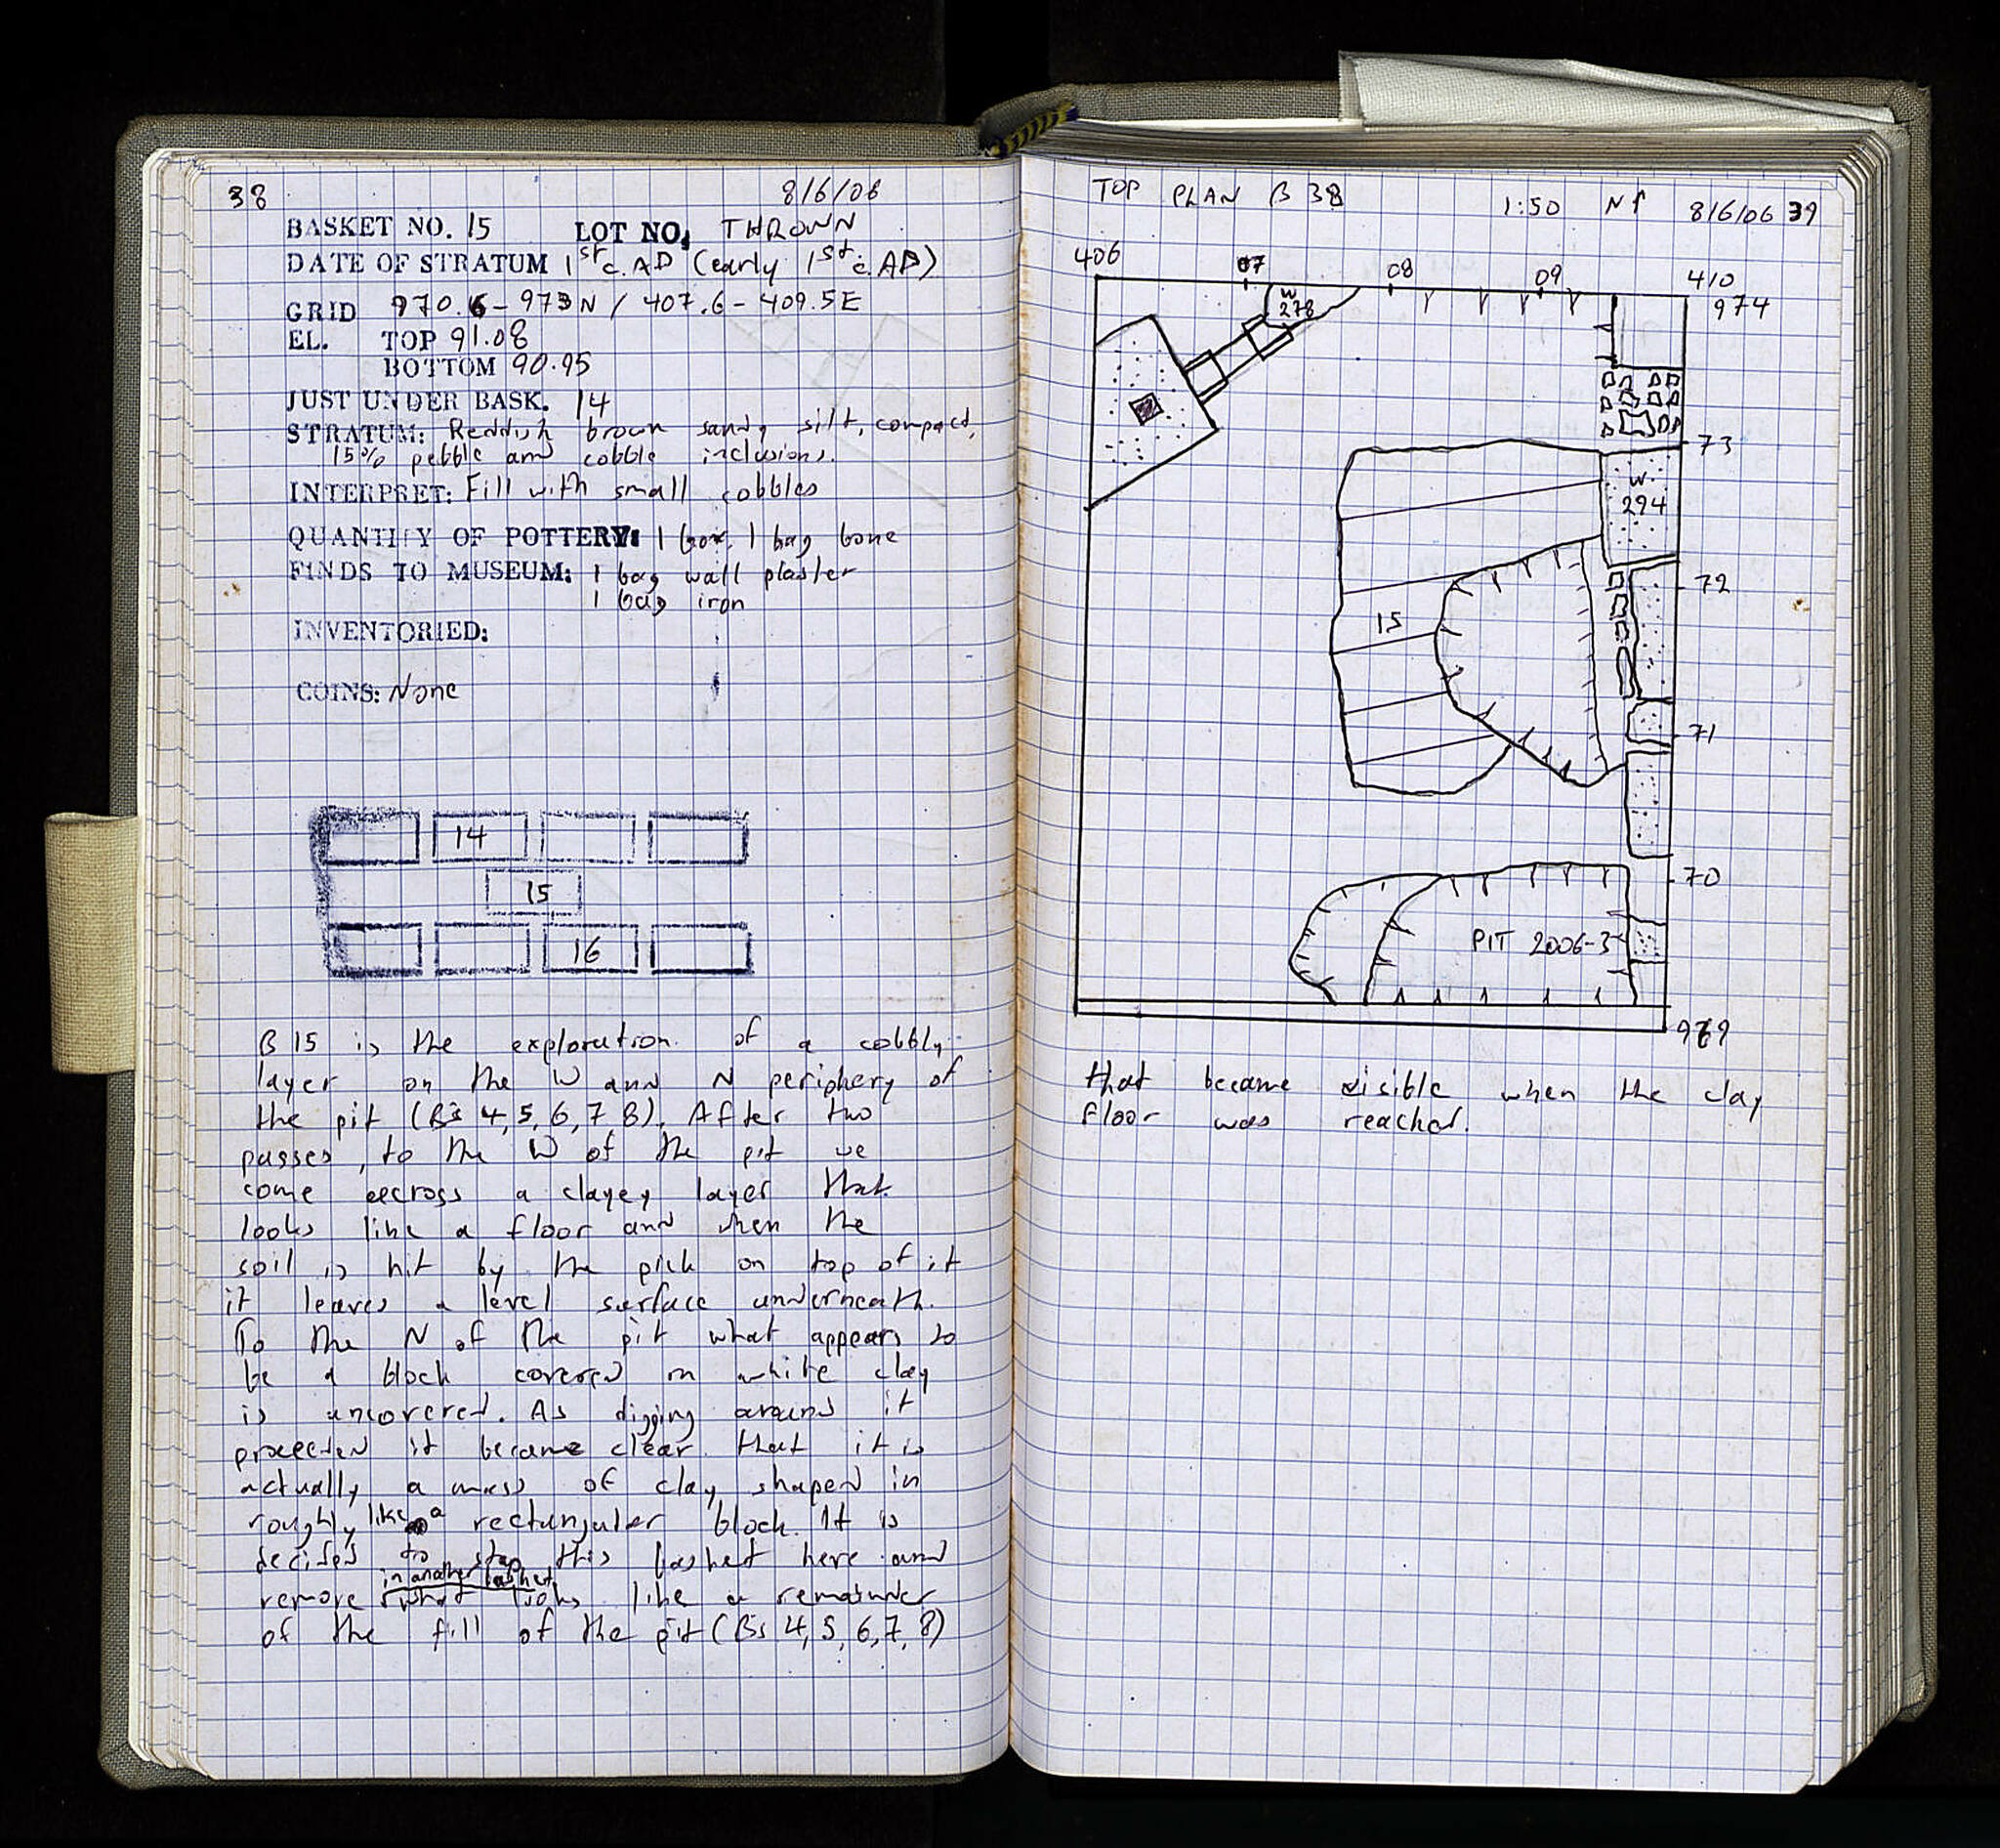 38
8/6/06
BASKET NO. 15 LOT NO. THROWN
DATE OF STRATUM 1st c. AD (early 1st c. AD)
GRID 970.6 - 973 N / 407.6 - 409.5 E
EL. TOP 91.08
BOTTOM 90.95
JUST UNDER BASK. 14
STRATUM: Reddish brown sandy silt, compact,
15% pebble and cobble inclusions.
INTERPRET: Fill with small cobbles
QUANTITY OF POTTERY: 1 box, 1 bag bone
FINDS TO MUSEUM: 1 bag wall plaster
1 bag iron
INVENTORIED:
COINS: None
14
15
16
B 15 is the exploration of a cobbly
layer on the W and N periphery of
the pit (Bs 4, 5, 6, 7, 8). After two
passes, to the W of the pit we
come across a clayey layer that
looks like a floor and when the
soil is hit by the pick on top of it
it leaves a level surface underneath.
To the N of the pit what appears to
be a block covered in white clay
is uncovered. As digging around it
proceeded it became clear that it is
actually a mass of clay shaped in
roughly like a rectangular block. It is
decided to stop this basket here and
remove in another basket what looks like a remainder
of the fill of the pit (Bs 4, 5, 6, 7, 8)
TOP PLAN B 38 1:50 N↑ 8/6/06 39
406 07 08 09 410
974
W
278
73
W
294
72
15
71
70
PIT 2006-3
969
that became visible when the clay
floor was reached.